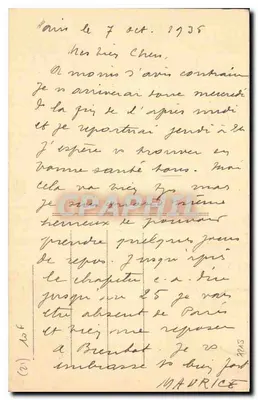 Paris le 7 oct. 1936
Mes bien Chers,
A moins d'avis contraire
je n'arriverai donc mercredi
de la fin de l'après midi
et je repartirai jeudi à
J'espère v trouver en
bonne santé tous. Moi
cela va bien
je suis même
heureux de pouvoir
prendre quelques jours
de repos. Jusqu'après
le chapitre c. à. dire
jusqu'au 25 je vais
être absent de Paris
et vais me reposer
à Je vs
embrasse ts bien fort
MAURICE
10 F
(21)